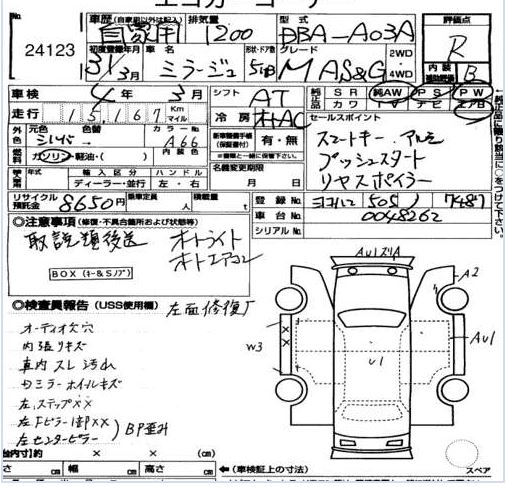 エコカーコーナー
24123
車歴 (自家用以外は記入) 自家用
排気量 1200
型式 DBA-A03A
評価点 R
初度登録年月 31年3月
車名 ミラージュ
形状・ドア数 5HB
グレード M AS&G
2WD
4WD
内装 補助評価 B
車検 4年 3月
シフト AT
純正品 SR 純AW PS PW
カワ ナビ エアB
走行 15,167 Km マイル
冷房 オートAC
セールスポイント
外色 元色 シルバー 色替
カラーNo. A66
新車整備手帳(保証書付) 有・無
スマートキー.アルミ
プッシュスタート
リヤスポイラー
燃料 ガソリン・軽油・( )
名義変更期限
月 日
使用車 輸入区分 ハンドル
ディーラー・並行 左・右
リサイクル預託金 8650円
乗車定員 人
積載量 t
登録No. ヨコハマ 505 ) 7487
車台No. 0048262
シリアルNo.
◎注意事項 (修復・不具合箇所および状態等)
取説類後送 オートライト
オートエアコン
BOX (キー&Sノブ)
◎検査員報告 (USS使用欄) 左面修復ア
オーディオ欠穴
内張りキズ
車内 スレ 汚れ
ミラー ホイルキズ
左.ステップXX
左FピラーXX
左センターピラー ) BP歪み
A2
W3
U1
AU1
(cm) × × (cm)
さ 幅 高さ
←(車検証上の寸法)
スペア